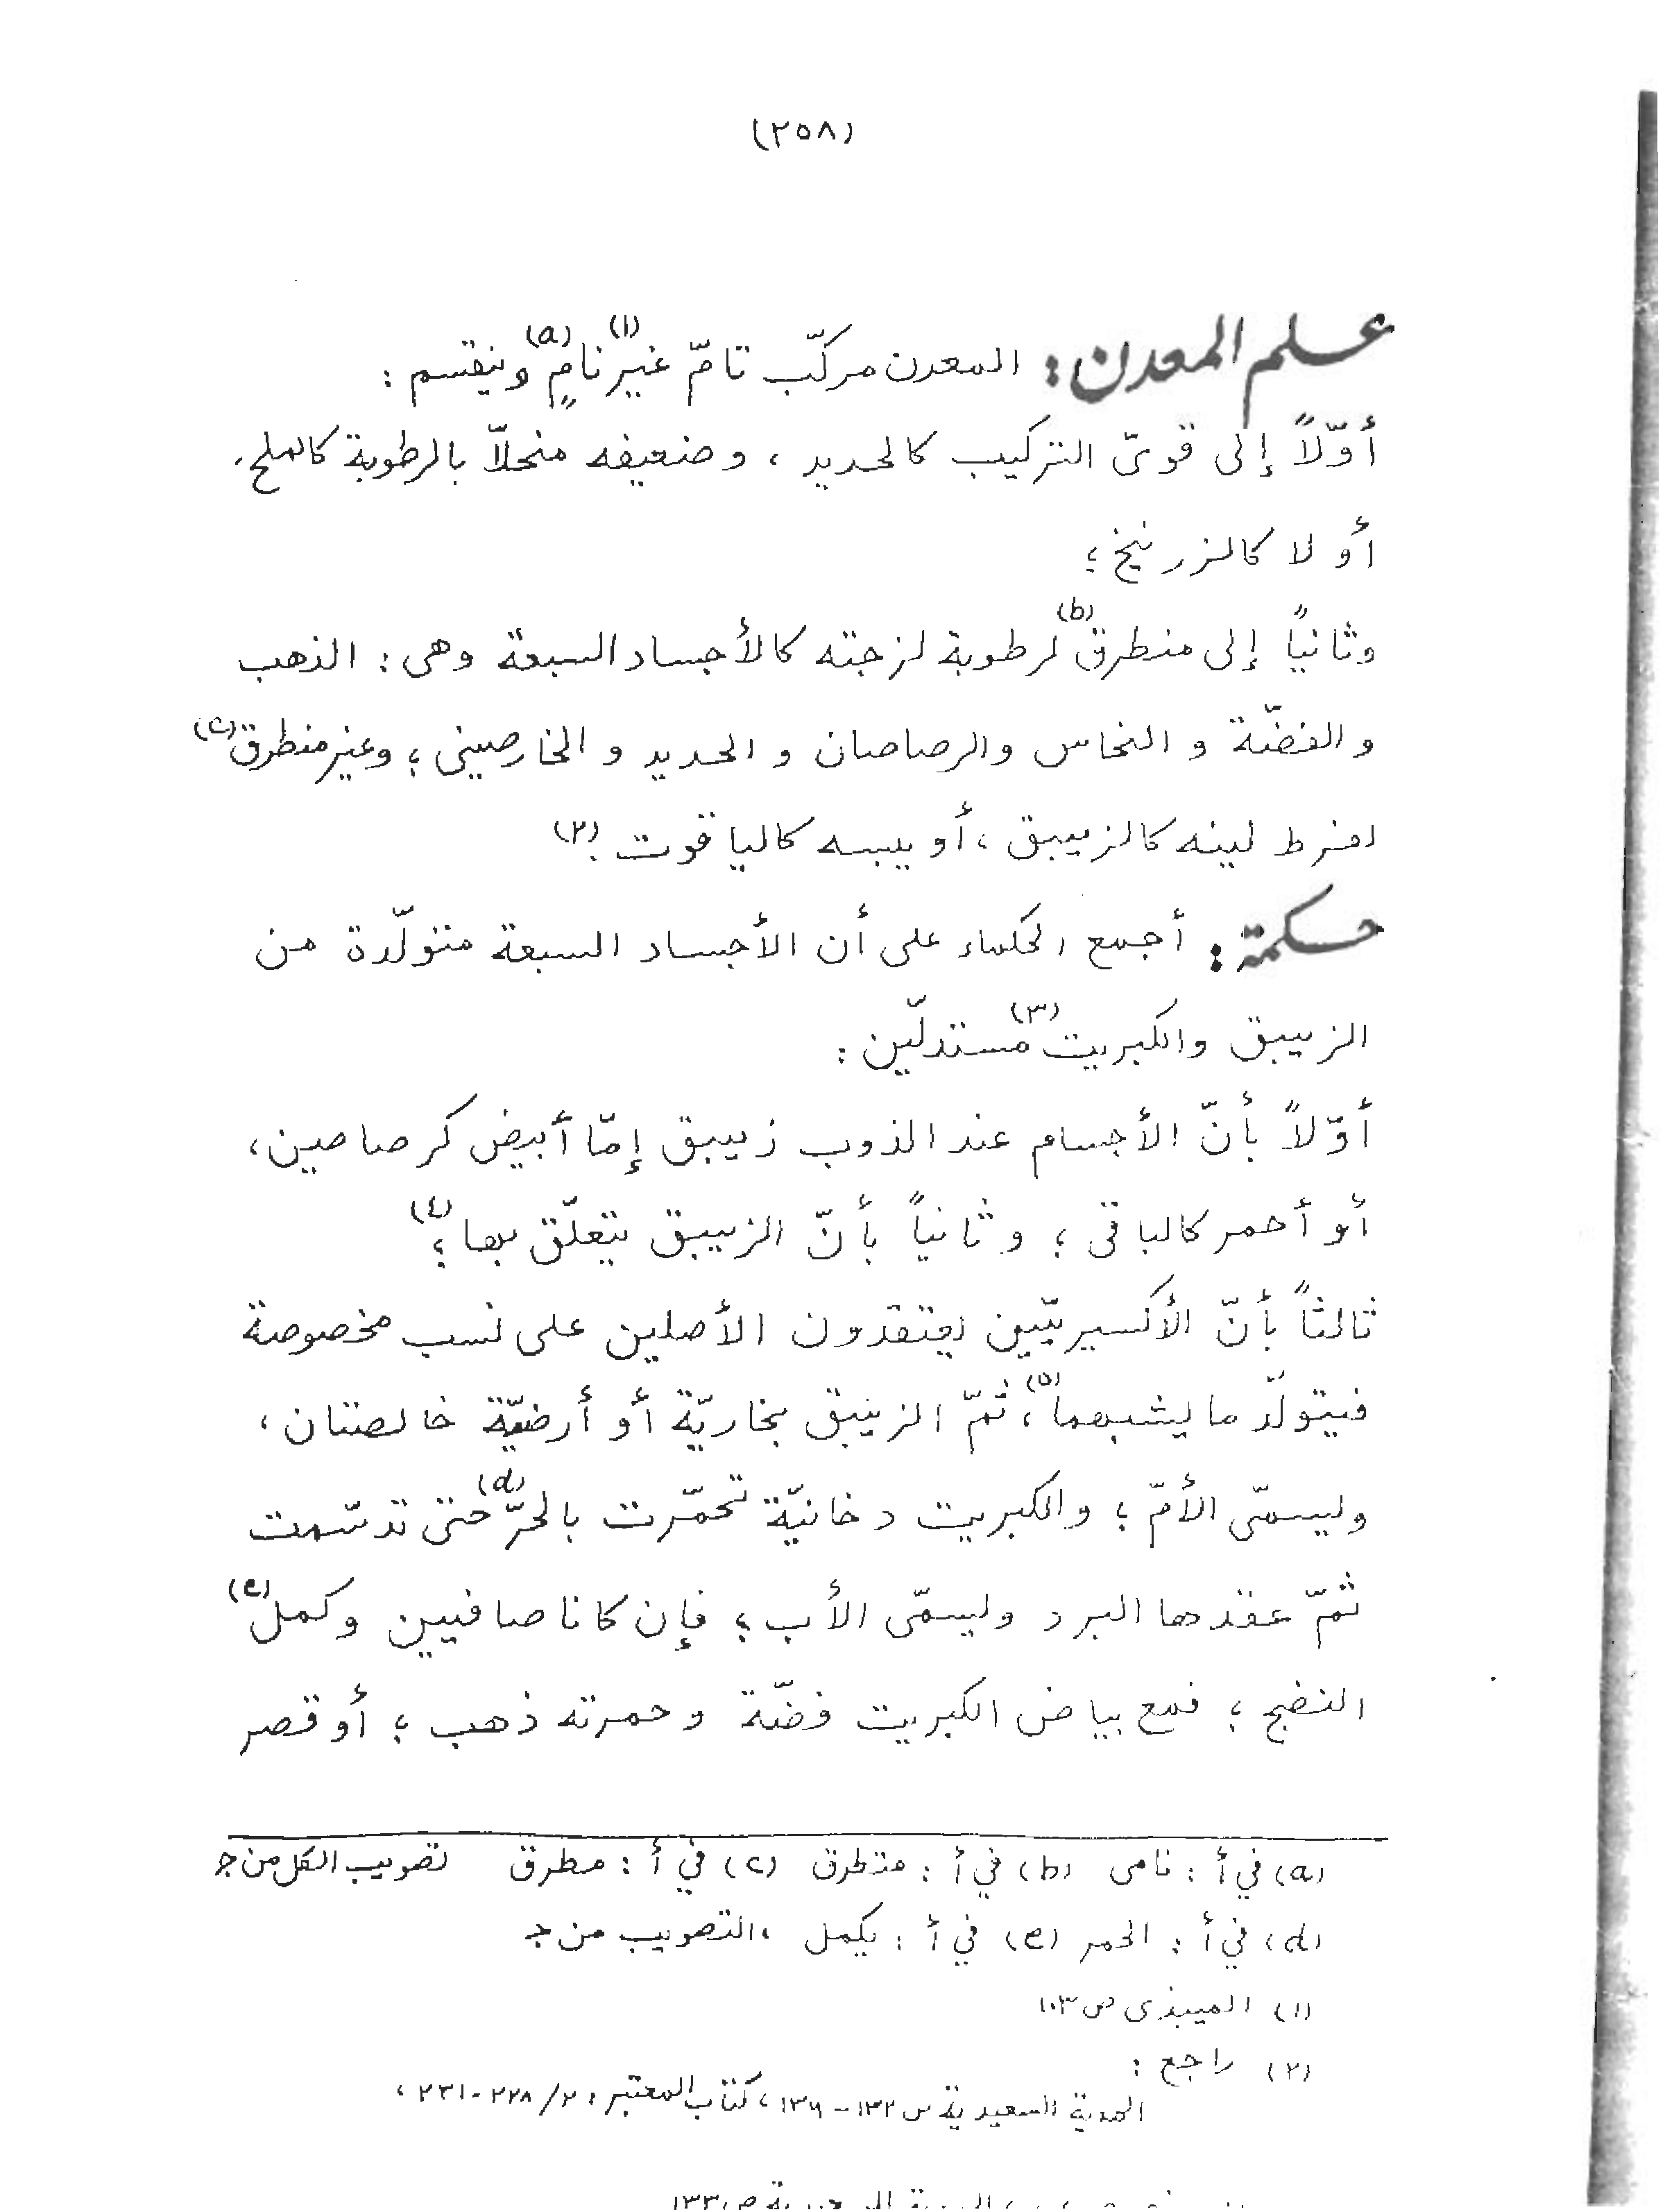 (٢٥٨)
علم المعدن: المعدن مركّب تامّ غير(١) نامٍ(a) وينقسم:
أوّلاً إلى قوىّ التركيب كالحديد، وضعيفه منحلاّ بالرطوبة كالملح،
أو لا كالزرنيخ؛
وثانياً إلى منطرق(b) لرطوبة لزجته كالأجساد السبعة وهى: الذهب
والفضّة والنحاس والرصاصان والحديد والخارصينى؛ وغير منطرق(c)
لفرط لينه كالزيبق، أو يبسه كالياقوت.(٢)
حكمة: أجمع الحكماء على أن الأجساد السبعة متولّدة من
الزيبق والكبريت(٣) مستدلّين:
أوّلاً بأنّ الأجسام عند الذوب زيبق إمّا أبيض كرصاصين،
أو أحمر كالباقى؛ وثانياً بأنّ الزيبق يتعلّق بها؛(٤)
ثالثاً بأنّ الأكسيريّين يعتقدون الأصلين على نسب مخصوصة
فيتولّد ما يشبهما(٥)، ثمّ الزيبق بخاريّة أو أرضيّة خالصتان،
وليسمّى الأمّ؛ والكبريت دخانيّة تخمّرت بالحرّ(d) حتى تدسّمت
ثمّ عقدها البرد وليسمّى الأب؛ فإن كانا صافيين وكمل(e)
النضج؛ فمع بياض الكبريت فضّة وحمرته ذهب؛ أو قصر
(a) في أ: نامى (b) في أ: متطرق (c) في أ: مطرق تصويب الكل من ج
(d) في أ: الحمر (e) في أ: يكمل، التصويب من ج
(١) الميبذى ص ١٠٣
(٢) راجع:
الهدية السعيدية ص ١٣٢-١٣٦، كتاب المعتبر: ٢/ ٢٢٨-٢٣١،
ص ١٣٣